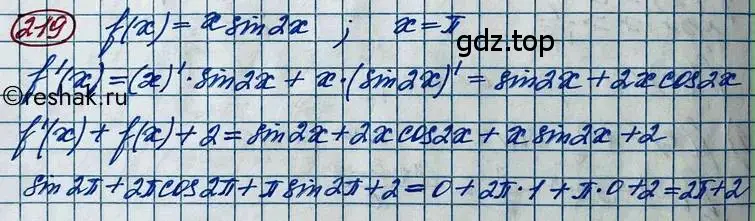 219 f(x) = x sin2x ; x = π
gdz.top
f'(x) = (x)' · sin2x + x · (sin2x)' = sin2x + 2x cos2x
©reshak.ru
f'(x) + f(x) + 2 = sin2x + 2x cos2x + x sin2x + 2
sin2π + 2π cos2π + π sin2π + 2 = 0 + 2π · 1 + π · 0 + 2 = 2π + 2